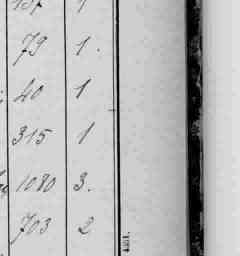 137 1
79 1.
40 1
315 1
1080 3.
703 2